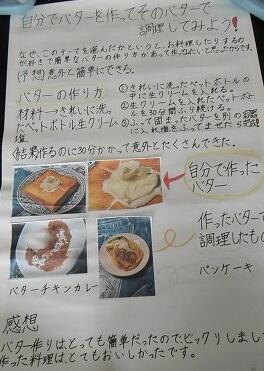 自分でバターを作ってそのバターで
調理してみよう!
なぜ、このテーマを選んだかというと、お料理したりするの
が好きで簡単なバターの作り方があって作ってみたいと思ったからです。
(予想)意外と簡単にできる。
バターの作り方
材料→きれいに洗っ
たペットボトル生クリーム
塩
①きれいに洗ったペットボトルの
中に生クリームを入れる。
②生クリームを入れたペットボ
トルを30分間ふり続ける。
③ふって固まったバターを別の容器
に入れ塩をふってまぜたら完
(結果)作るのに30分かかって意外とたくさんできた。
自分で作った
バター
作ったバターで
調理したもの
バターチキンカレー
パンケーキ
感想
バター作りは、とっても簡単だったので、ビックリしまし
作った料理は、とてもおいしかったです。